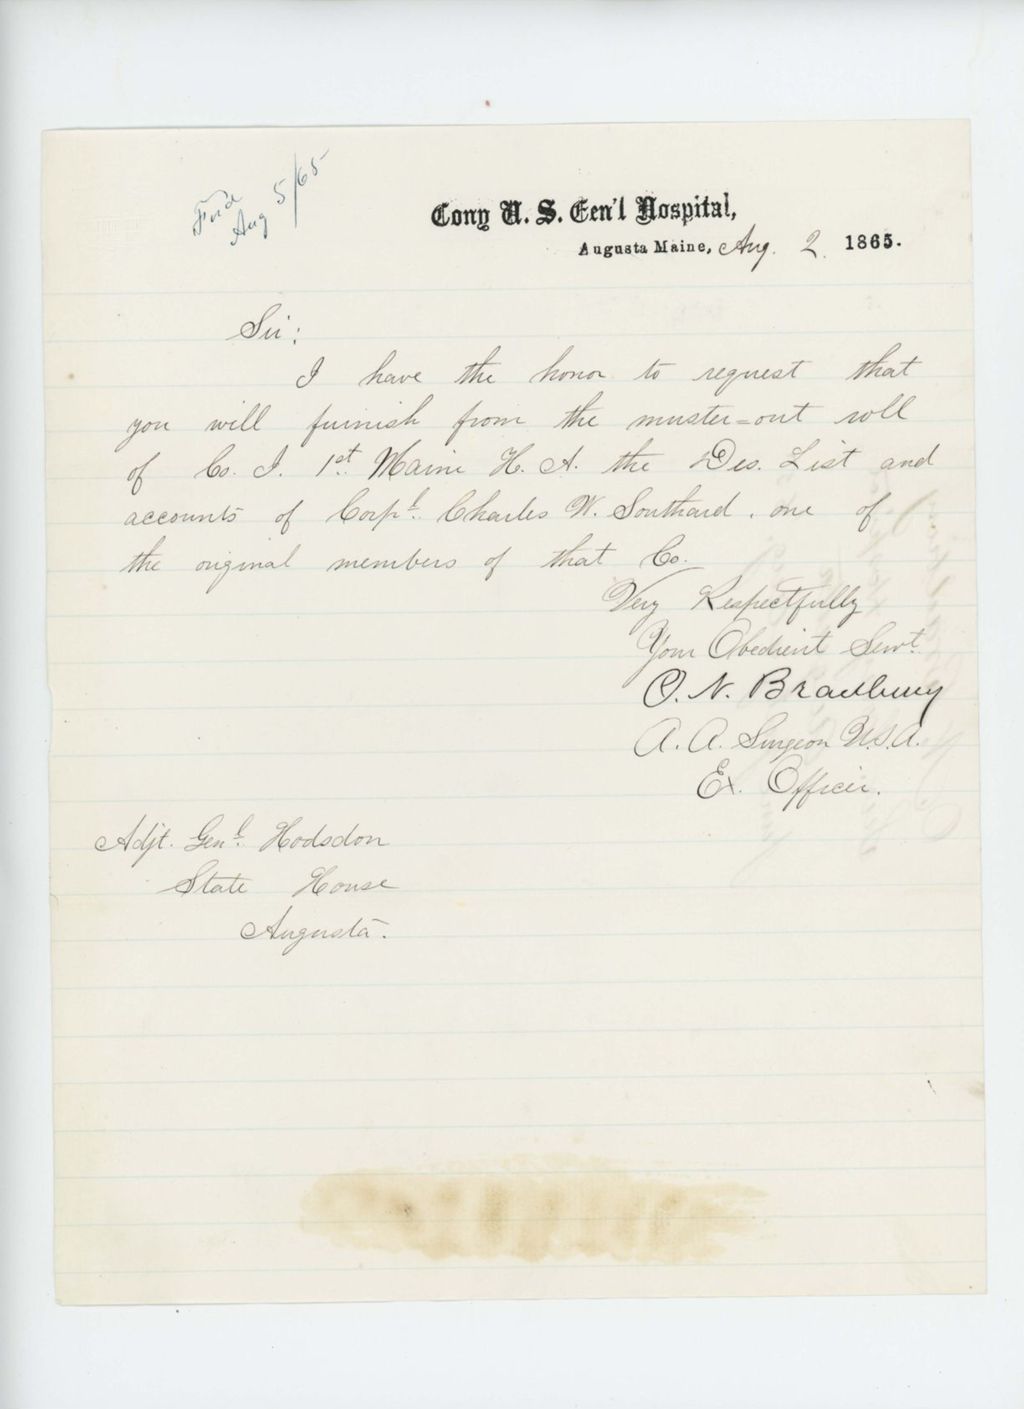 Fur'd
Aug 5/65
Cony U. S. Gen'l Hospital,
Augusta Maine, Aug. 2. 1865.
Sir:
I have the honor to request that
you will furnish from the muster=out roll
of Co. I. 1st. Maine H. A. the Des. List and
accounts of Corpl. Charles W. Southard, one of
the original members of that Co.
Very Respectfully
Your Obedient Servt.
O. N. Bradbury
A. A. Surgeon U.S.A.
Ex. Officer.
Adjt. Genl. Hodsdon
State House
Augusta.